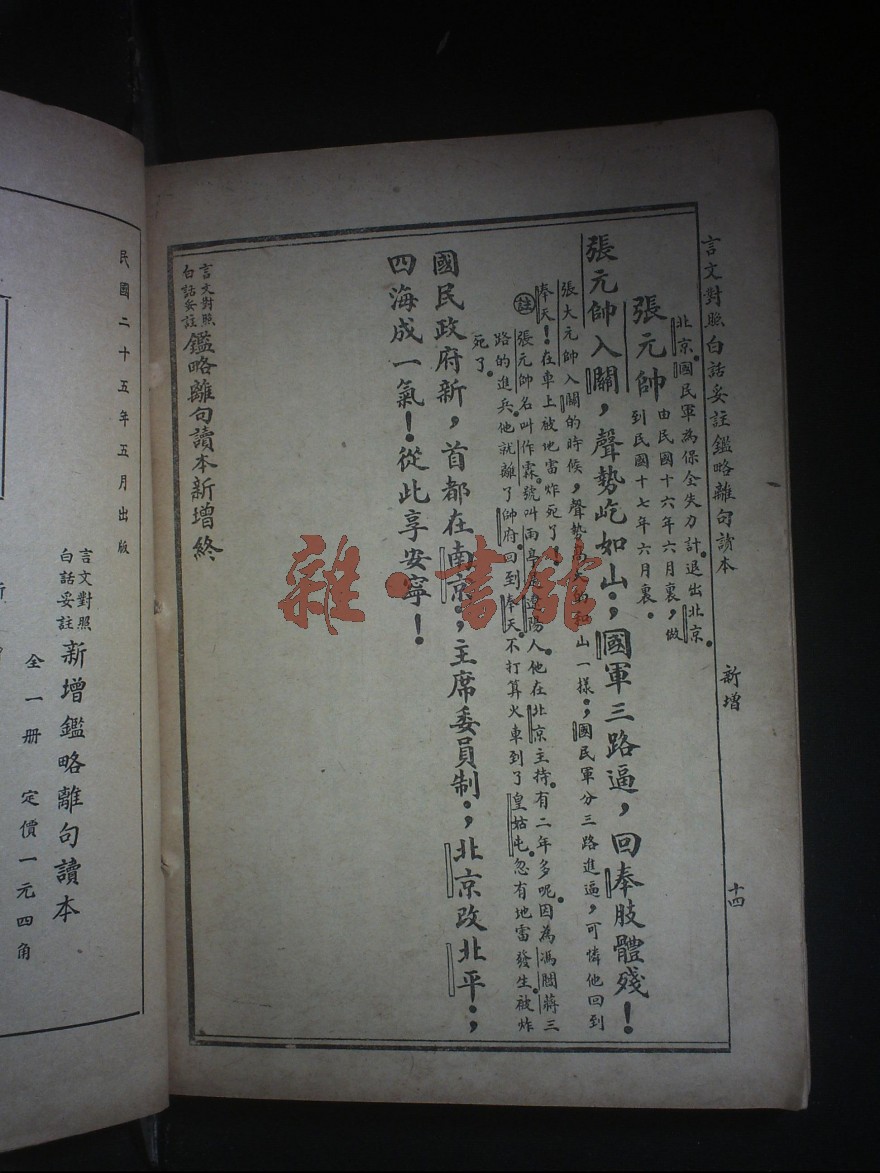 言文對照白話妥註鑑略離句讀本 新增 十四
北京。國民軍為保全失力計。退出北京。
張元帥 由民國十六年六月裏，做
到民國十七年六月裏。
張元帥入關，聲勢屹如山；國軍三路逼，回奉肢體殘！
張大元帥入關的時候，聲勢高大的和山一樣；國民軍分三路進逼，可憐他回到
奉天！在車上被地雷炸死了！
註 張元帥名叫作霖。號叫雨亭是遼陽人。他在北京主持。有二年多呢。因為馮閻蔣三
路的進兵。他就離了帥府。回到奉天。不打算火車到了皇姑屯。忽有地雷發生。被炸
死了。
國民政府新，首都在南京；主席委員制；北京改北平；
四海成一氣！從此享安寧！
言文對照
白話妥註 鑑略離句讀本新增終
民國二十五年五月出版
言文對照
白話妥註 新增鑑略離句讀本
全一册 定價一元四角
雜·書館